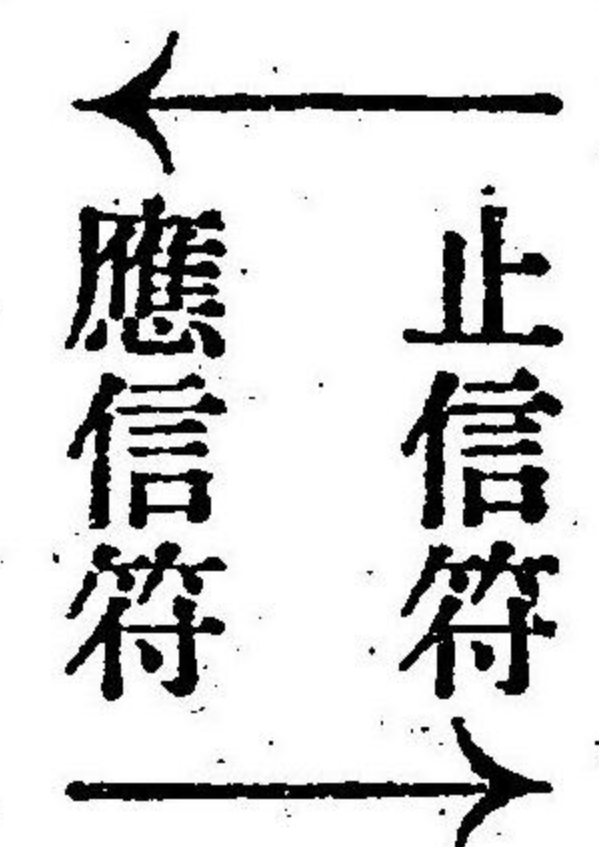 止信符
應信符